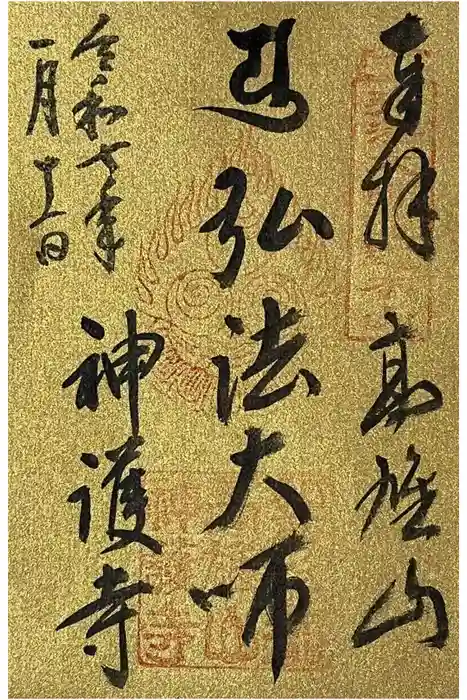 奉拝 高雄山
弘法大師
神護寺
令和七年
一月十一日